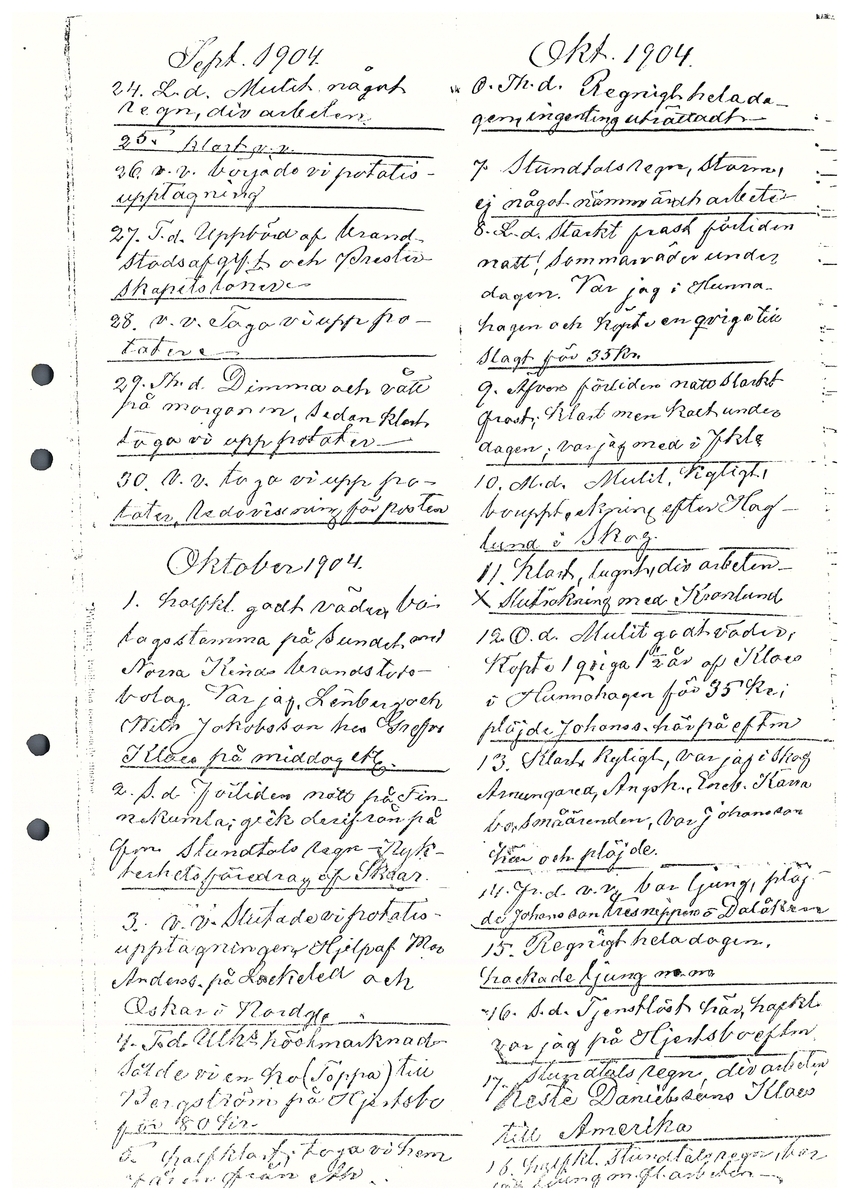 Sept. 1904.
24. L.d. Mulit något
regn, div arbeten.
25. Klart v.v.
26. v.v. började vi potatis-
upptagning
27. T.d. Uppbörd af brand-
stodsafgift och Prester-
skapetslöner
28. v.v. Toga vi upp po-
tater
29. Th.d. Dimma och vått
på morgonen, sedan klart
toga vi upp potater
30. v.v. toga vi upp po-
tater, redovisning för posten
Oktober 1904.
1. halfkl. godt väder,
tagsstamma på Sundet med
Norra Kinds brandstods-
bolag. Var jag, Lenberg och
Jakobsson hos
Klaes på middag etc.
2. S.d. förliden natt på Fin-
nekumla; gick derifrån på
efm. Stundtals regn Nyk-
terhetsföredrag af Skaar.
3. v.v. Slutade vi potatis-
upptagningen, Hjelp af
Anders. på och
Oskar i
4. T.d. Ulhs höstmarknad
Sålde vi en ko (Toppa) till
Bergström på Hjertsbo
för 80 kr.
5. halfklart; toga vi hem
från
Okt. 1904.
6. Th.d. Regnigt hela da-
gen, ingenting uträttadt
7. Stundtals regn, storm,
ej något nämnvärdt arbete
8. L.d. Starkt frost förliden
natt, Sommarväder under
dagen. Var jag i Hunna-
hagen och köpte en qviga till
slagt för 35 Kr.
9. Äfven förliden natt starkt
frost; klart men kallt under
dagen; var jag med i
10. M.d. Mulit, kyligt,
bouppteckning efter Hag-
lund i Skog.
11. Klart, lugnt, div arbeten
X Sluträkning med Kronlund
12 O.d. Mulit godt väder,
Köpte 1 qviga 1½ år af Klaes
i Hunnahagen för 35 Kr;
plöjde Johanss. här på eftm
13. Klart kyligt, var jag i Skog
Arnungared,
småärenden, var Johansson
här och plöjde.
14. Fr.d. v.v. bar ljung, plöj-
de Johansson
15. Regnigt hela dagen,
hackade ljung m.m
16. S.d. Tjenstlöst här, halfkl.
var jag på Hjertsbo eftm.
17. Stundtals regn, div arbeten
Reste Danielssons Klaes
till Amerika
halfkl. Stundtals regn, bar
ljung m.fl. arbeten